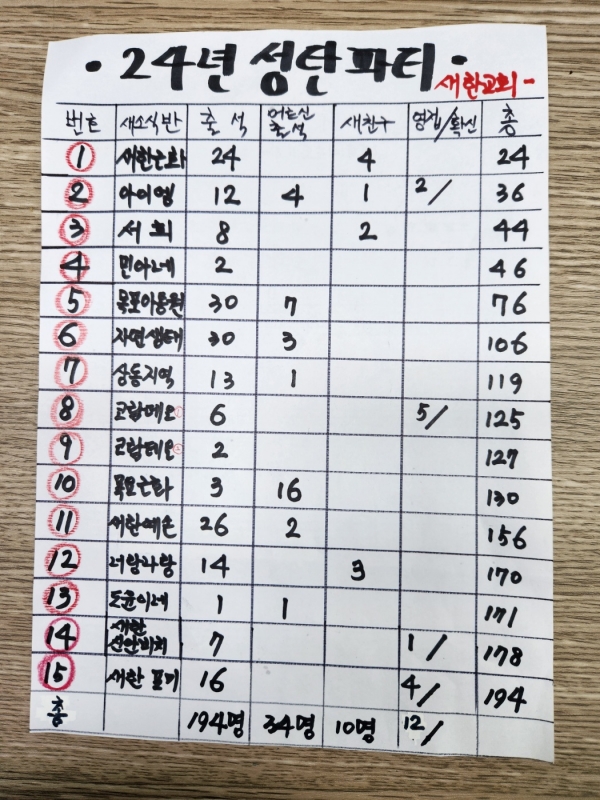 · 24년 성탄파티 ·
새한교회 -
번호 새소식반 출석 어르신 출석 새친구 영접/확신 총
1 새한근화 24 4 24
2 아이엠 12 4 1 2/ 36
3 서희 8 2 44
4 민아네 2 46
5 목포아동원 30 7 76
6 자연생태 30 3 106
7 상동지역 13 1 119
8 고람메오 6 5/ 125
9 2 127
10 목포근화 3 16 130
11 새한예손 26 2 156
12 14 3 170
13 도윤이네 1 1 171
14 새한 7 1/ 178
15 새한 16 4/ 194
총 194명 34명 10명 12/